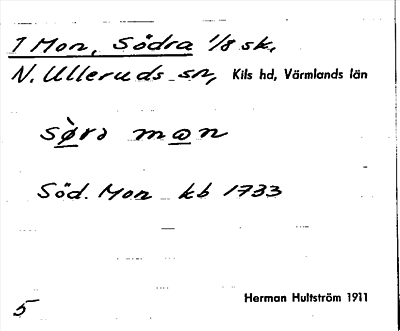 1 Mon, Södra 1/8 sk,
N. Ulleruds sn, Kils hd, Värmlands län
sø̀rɔ mɷn
Söd. Mon kb 1733
5 Herman Hultström 1911